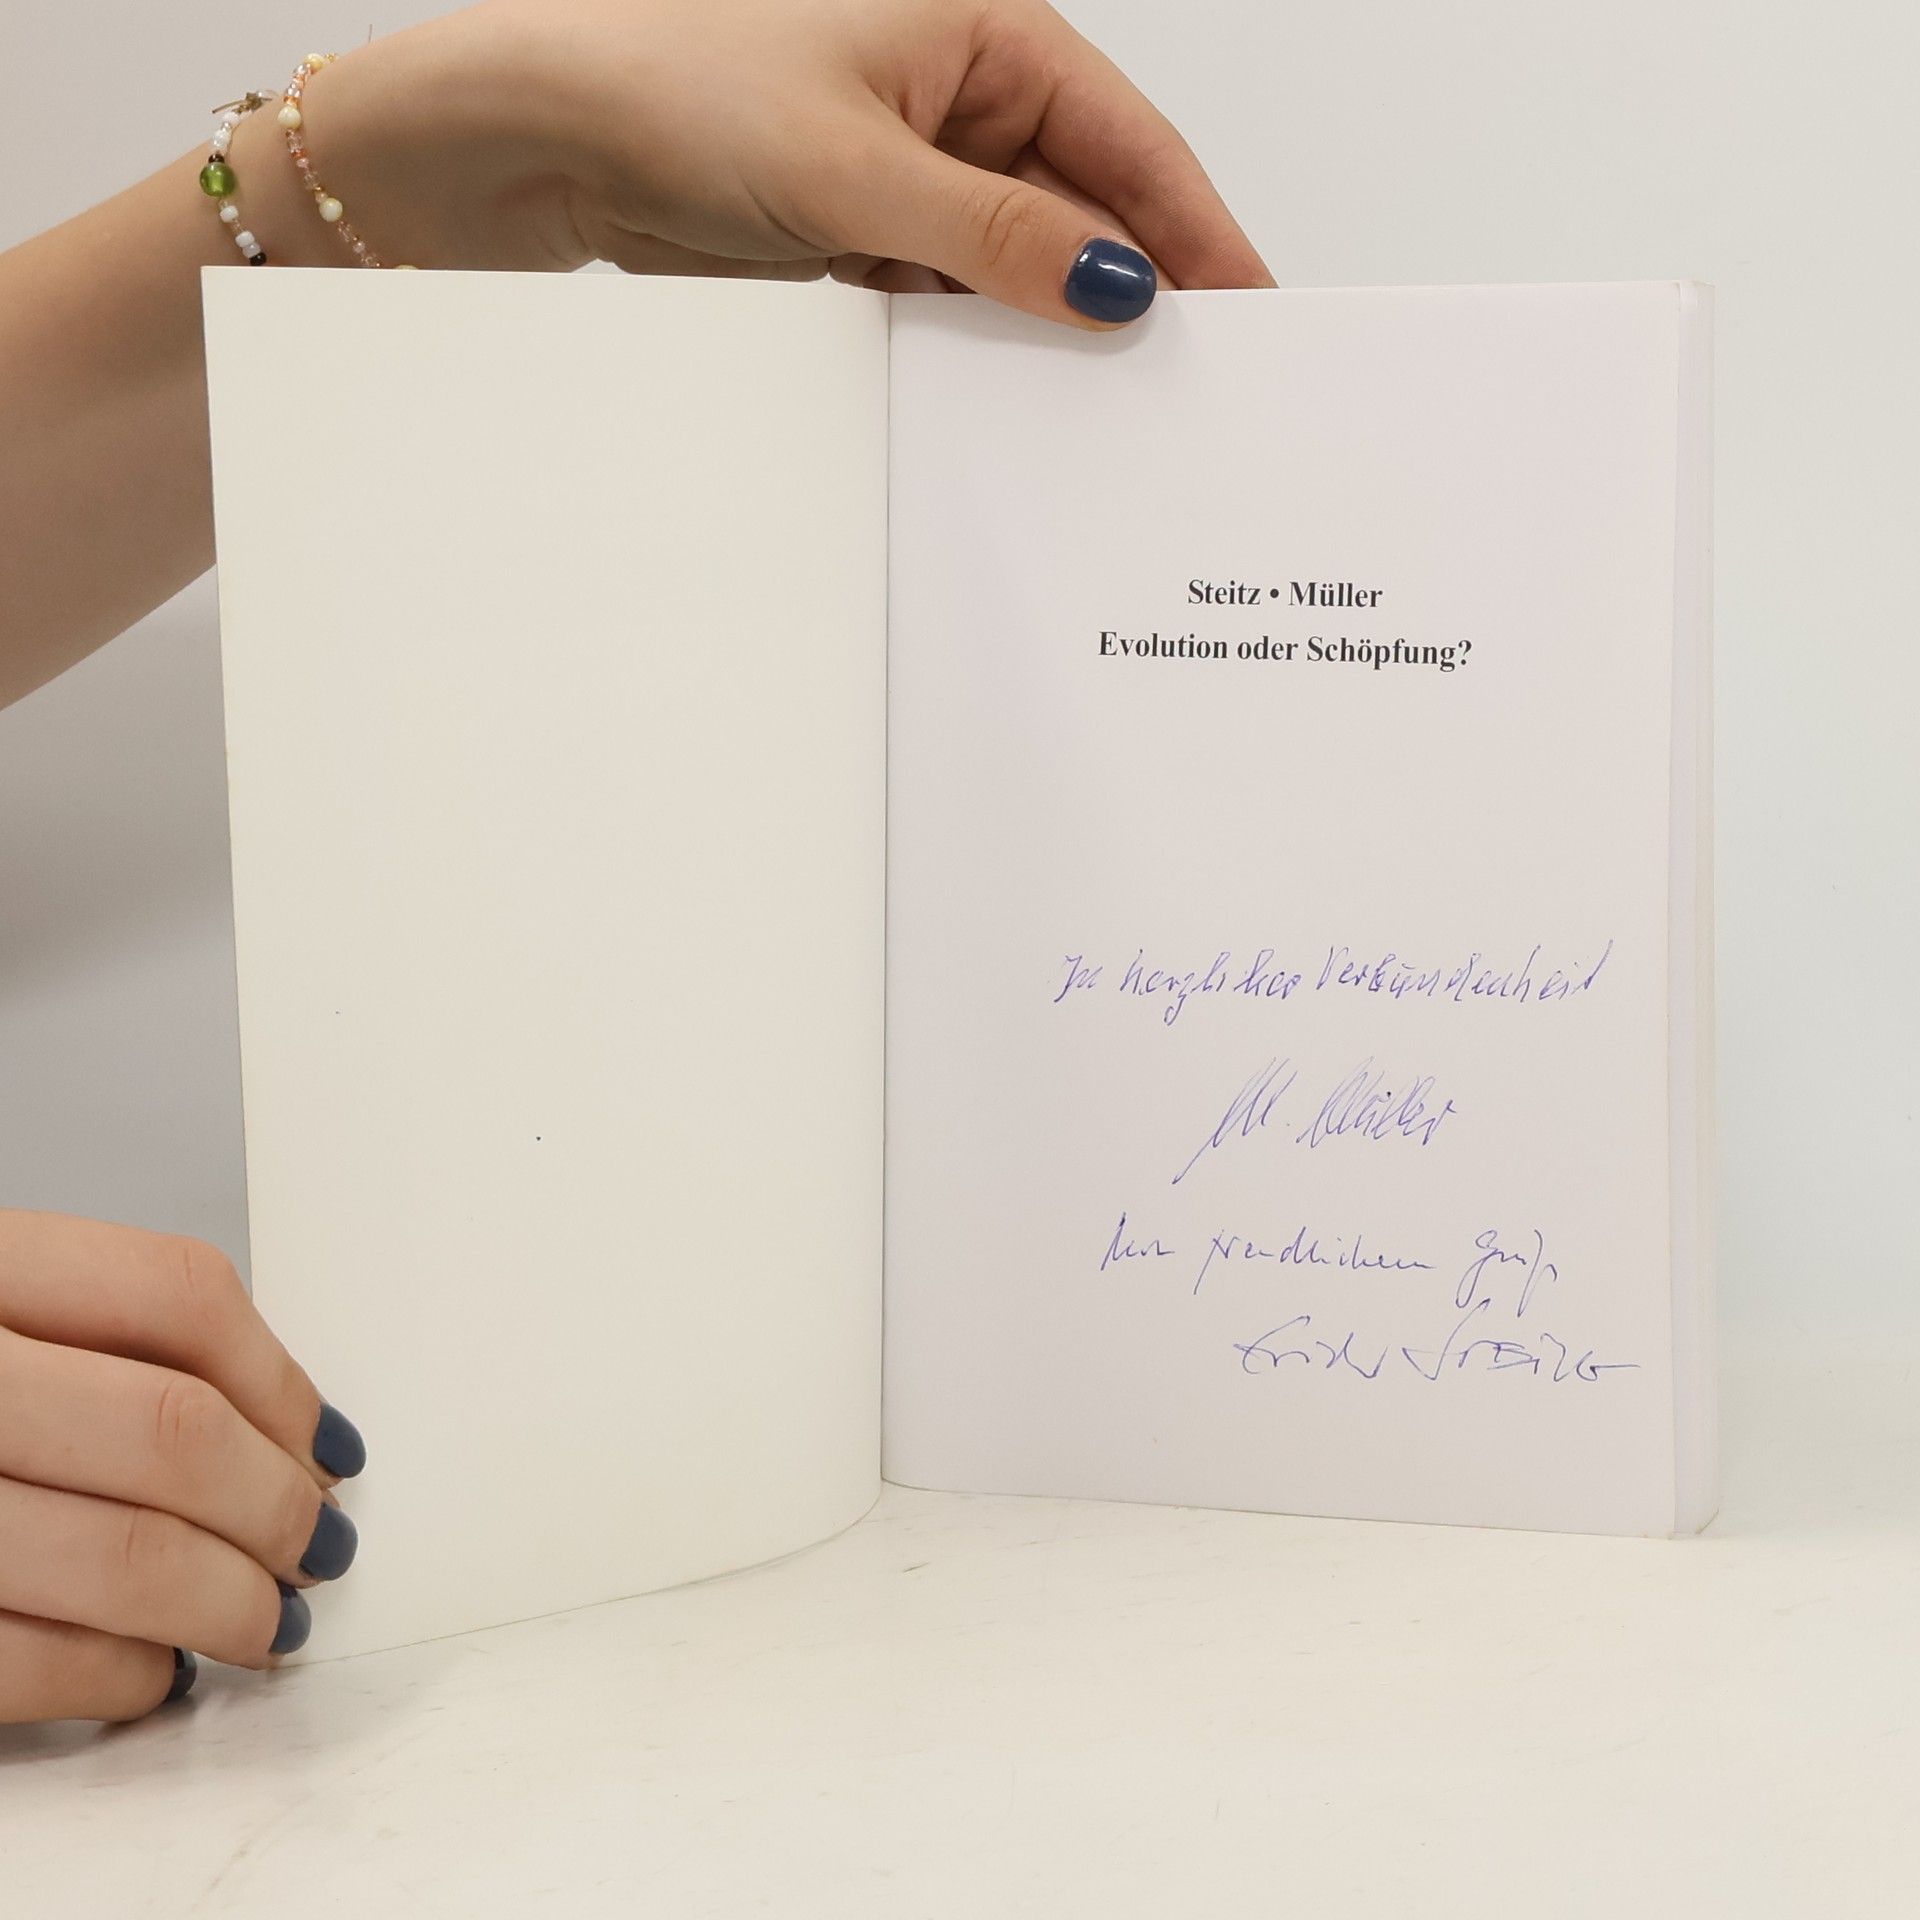 Steitz • Müller
Evolution oder Schöpfung?
In herzlicher Verbundenheit
M. Müller
Mit freundlichem Gruß
Erich Steitz